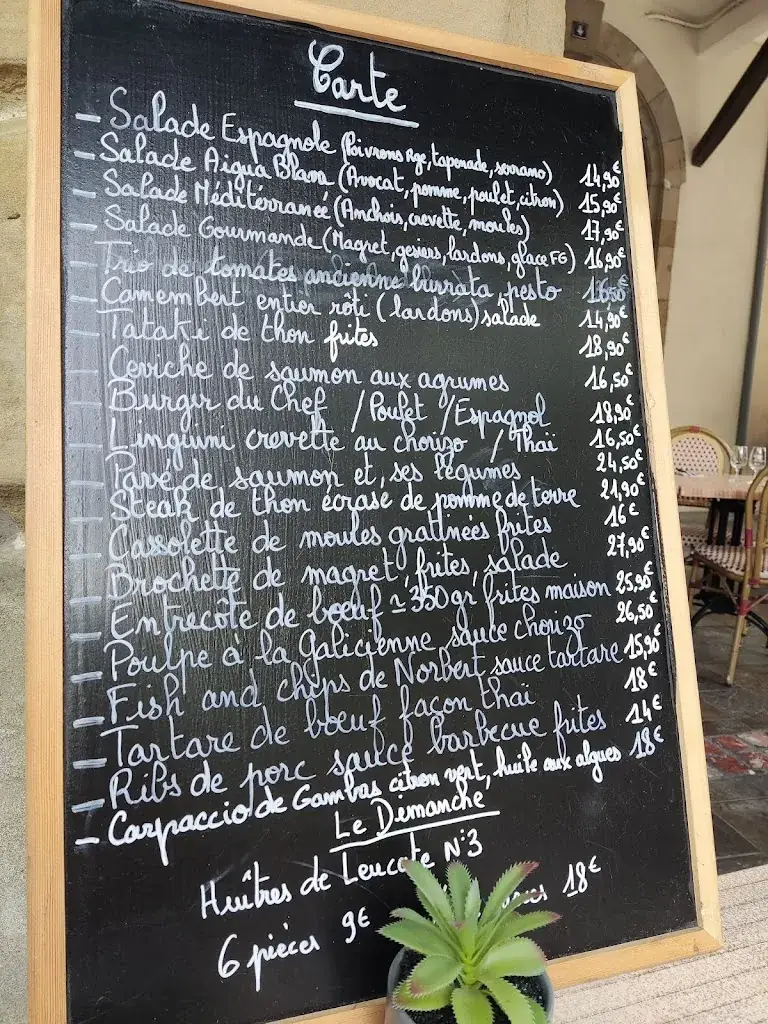 Carte
- Salade Espagnole (Poivrons rge, tapenade, serrano) 14,90€
- Salade Aigua Blava (Avocat, pomme, poulet, citron) 15,90€
- Salade Méditérranée (Anchois, crevette, moules) 17,90€
- Salade Gourmande (Magret, gesiers, lardons, glace FG) 16,90€
- Trio de tomates ancienne burrata pesto 16,50
- Camembert entier rôti (lardons) salade 14,90€
- Tataki de thon frites 18,90€
- Ceviche de saumon aux agrumes 16,50€
- Burger du Chef / Poulet / Espagnol 18,90€
- Linguini crevette au chorizo / Thaï 16,50€
- Pavé de saumon et ses légumes 24,50€
- Steak de thon écrasé de pomme de terre 21,90€
- Cassolette de moules gratinées frites 16€
- Brochette de magret, frites, salade 27,90€
- Entrecôte de boeuf ≃ 350gr, frites maison 25,90€
- Poulpe à la Galicienne sauce chorizo 26,50€
- Fish and chips de Norbert sauce tartare 15,90€
- Tartare de boeuf façon thaï 18€
- Ribs de porc sauce barbecue frites 14€
- Carpaccio de Gambas citron vert, huile aux algues 18€
Le Dimanche
Huîtres de Leucate N°3
6 pièces 9€ 18€